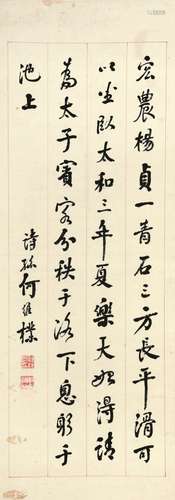 宏農楊貞一青石三方長平滑可
以坐臥太和三年夏樂天始得請
為太子賓客分秩于洛下息躬于
池上
詩孫何維樸